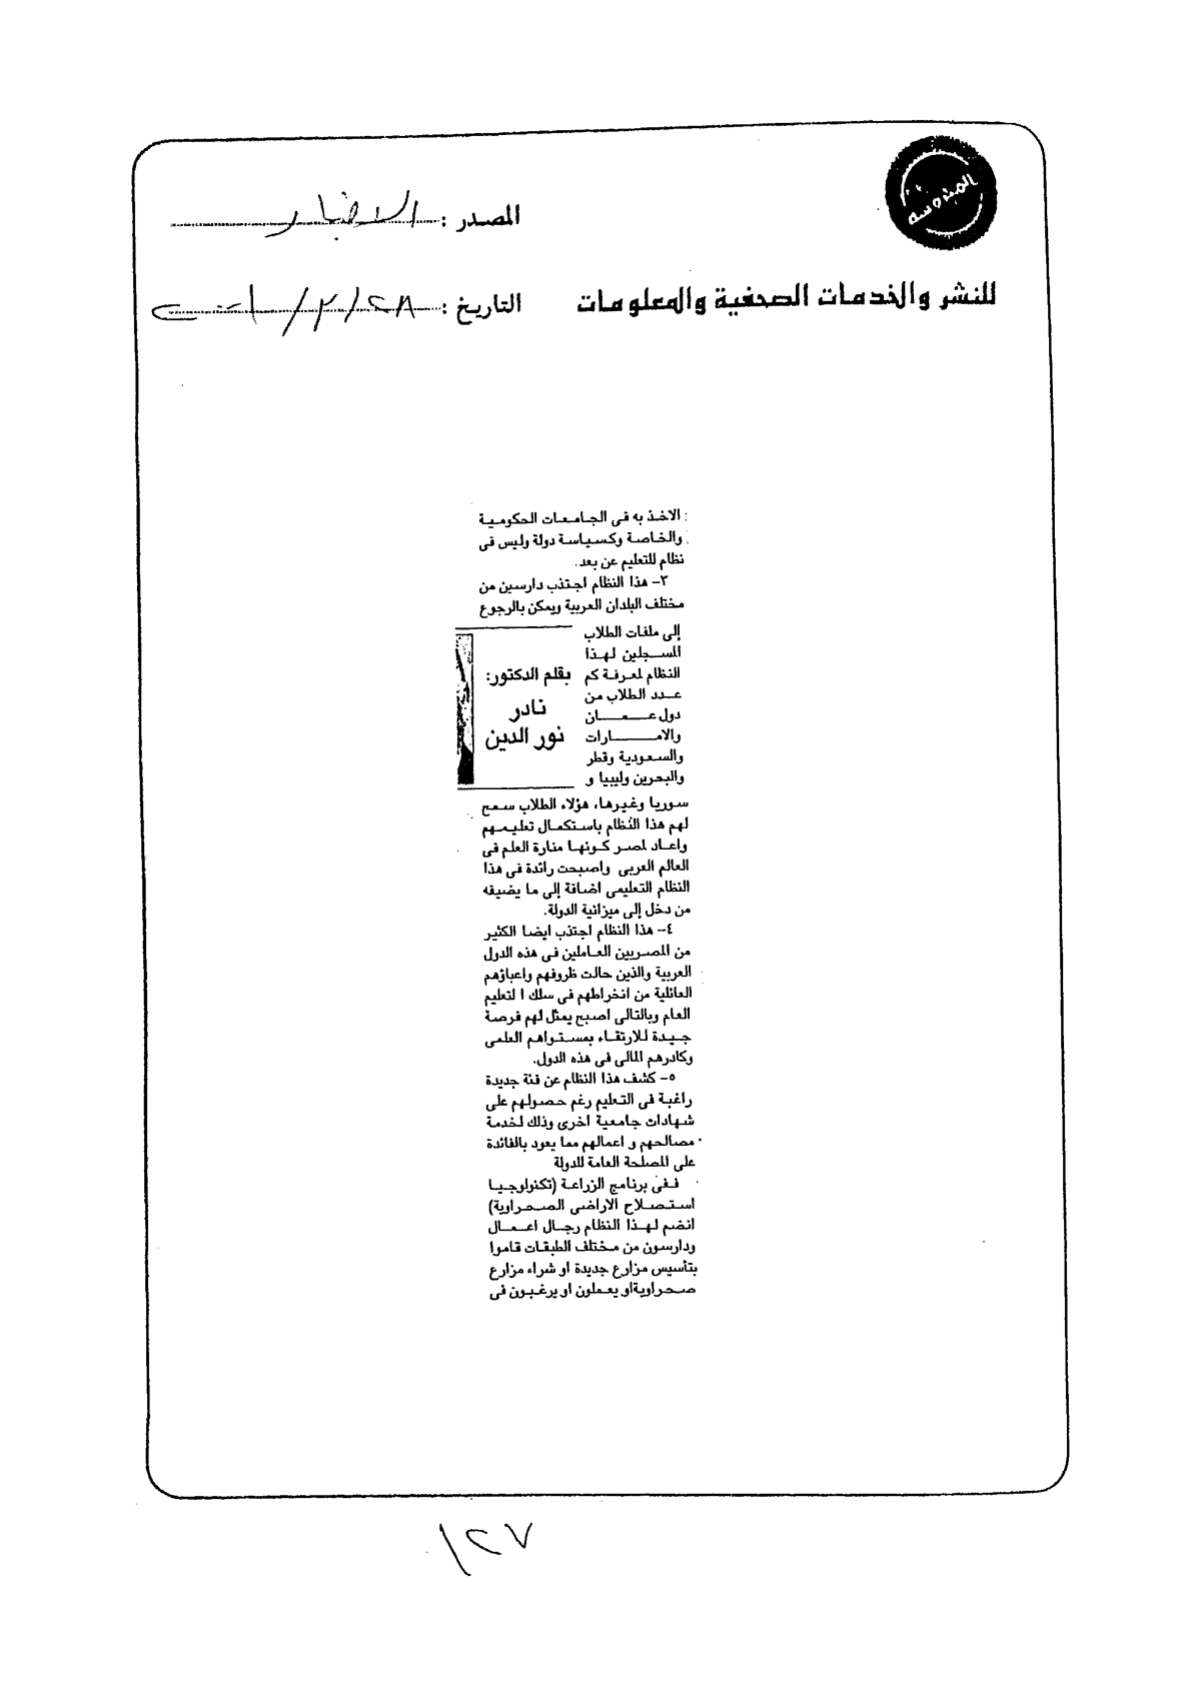 المحروسة
المصدر : الاخبار
للنشر والخدمات الصحفية والمعلومات
التاريخ : ٢٨/٢/٢٠٠١
الاخذ به فى الجامعات الحكومية
والخاصة وكسياسة دولة وليس فى
نظام للتعليم عن بعد.
٣- هذا النظام اجتذب دارسين من
مختلف البلدان العربية ويمكن بالرجوع
إلى ملفات الطلاب
المسجلين لهذا
النظام لمعرفة كم
عدد الطلاب من
دول عمان
والامارات
والسعودية وقطر
والبحرين وليبيا و
بقلم الدكتور:
نادر
نور الدين
سوريا وغيرها، هؤلاء الطلاب سمح
لهم هذا النظام باستكمال تعليمهم
واعاد لمصر كونها منارة العلم فى
العالم العربى واصبحت رائدة فى هذا
النظام التعليمى اضافة إلى ما يضيفه
من دخل إلى ميزانية الدولة.
٤- هذا النظام اجتذب ايضا الكثير
من المصريين العاملين فى هذه الدول
العربية والذين حالت ظروفهم واعباؤهم
العائلية من انخراطهم فى سلك ا لتعليم
العام وبالتالى اصبح يمثل لهم فرصة
جيدة للارتقاء بمستواهم العلمى
وكادرهم المالى فى هذه الدول.
٥- كشف هذا النظام عن فئة جديدة
راغبة فى التعليم رغم حصولهم على
شهادات جامعية اخرى وذلك لخدمة
مصالحهم و اعمالهم مما يعود بالفائدة
على المصلحة العامة للدولة
ففى برنامج الزراعة (تكنولوجيا
استصلاح الاراضى الصحراوية)
انضم لهذا النظام رجال اعمال
ودارسون من مختلف الطبقات قاموا
بتأسيس مزارع جديدة او شراء مزارع
صحراويةاو يعملون او يرغبون فى
١٢٧